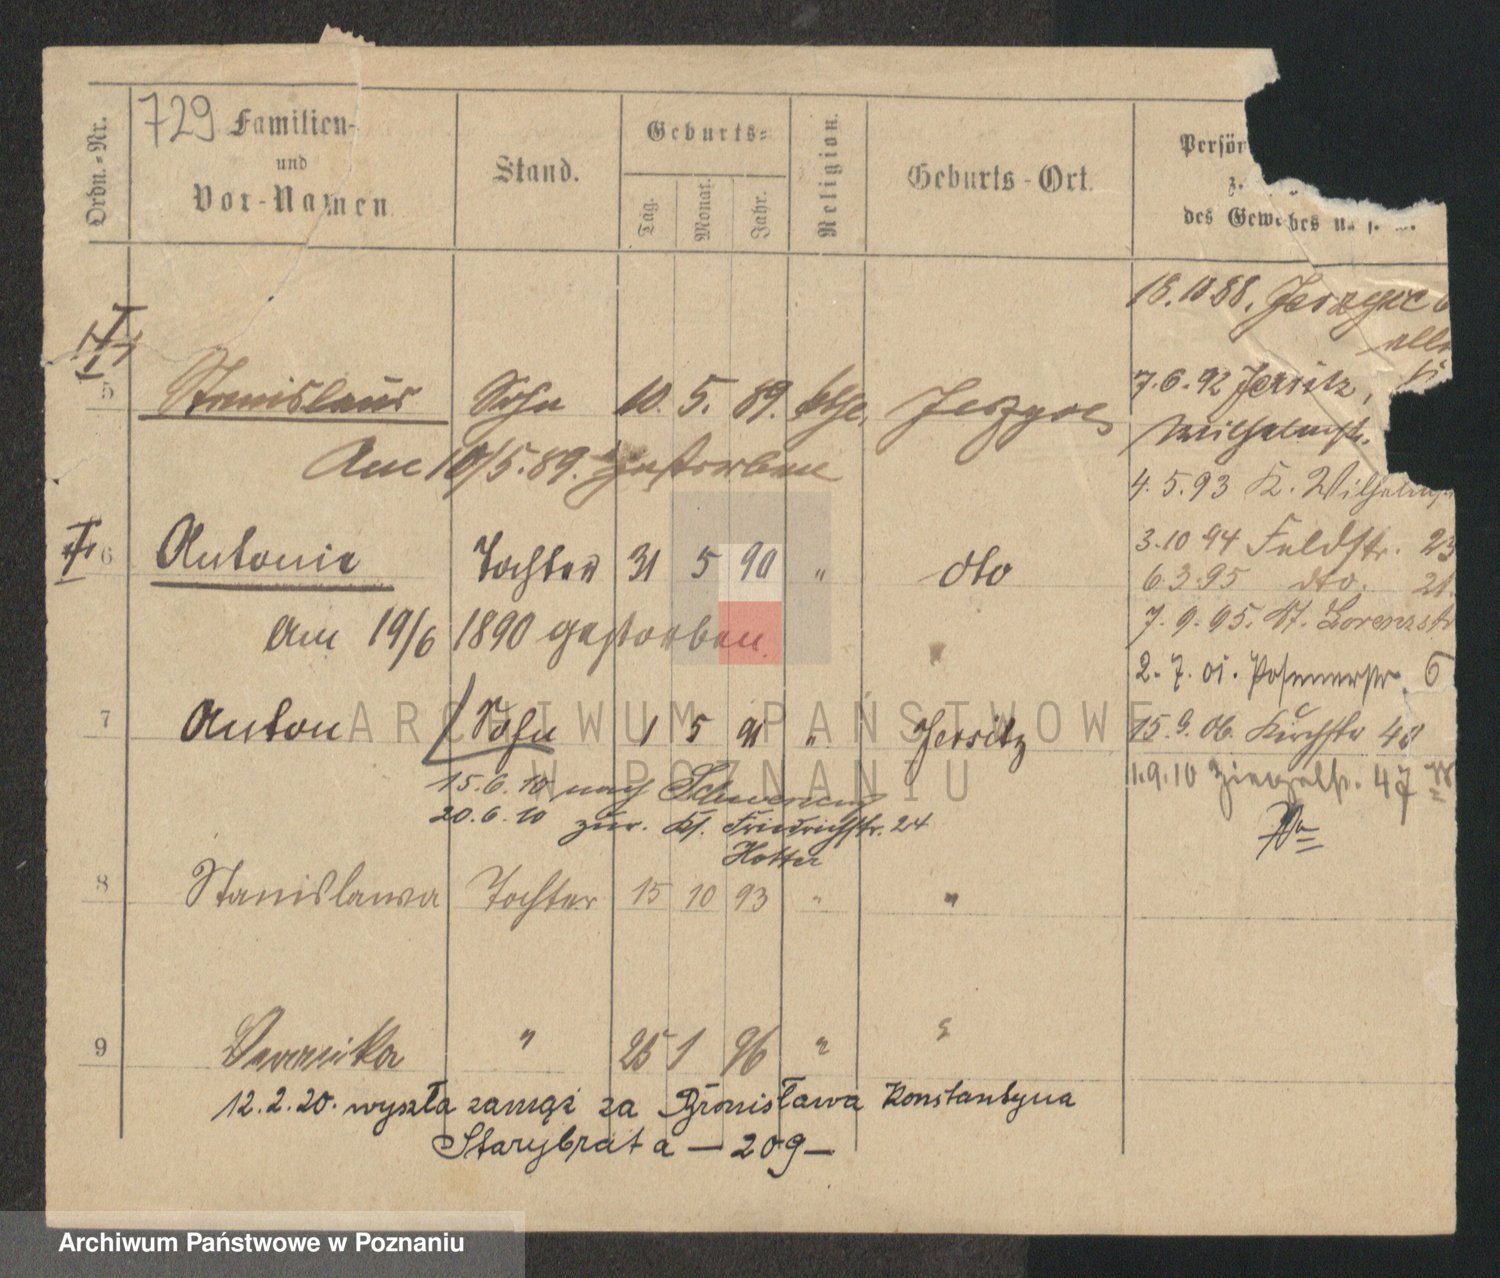 729
Ordn.-Nr.
Familien-
und
Vor-Namen
Stand.
Geburts-
Tag.
Monat.
Jahr.
Religion.
Geburts-Ort.
Persön
des Gewerbes u. s. w.
18.10.88. Jerzyce
5 Stanislaus Sohn 10. 5. 89. kth. Jerzyce
Am 10/5.89. gestorben
7.6.92 Jersitz,
Wilhelmstr.
4.5.93 K. Wilhelmstr
6 Antonie Tochter 31 5 90 " dto
Am 19/6 1890 gestorben
3.10 94 Feldstr. 23
6.3.95 dto. 21.
7.9.95. St. Lorenzstr
2.7.01. Posenerstr. 6
7 Anton Sohn 1 5 91 " Jersitz
15.6.10 nach Schwersenz
20.6.10 zur. Kl. Friedrichstr. 24
15.9.06. Kirchstr 40
11.9.10 Ziegelstr. 47
8 Stanislawa Tochter 15 10 93 " "
9 Veronika " 25 1 96 " "
12.2.20. wyszła zamąż za Bronisława Konstantyna
Starybrata — 209 —
ARCHIWUM PAŃSTWOWE
W POZNANIU
Archiwum Państwowe w Poznaniu